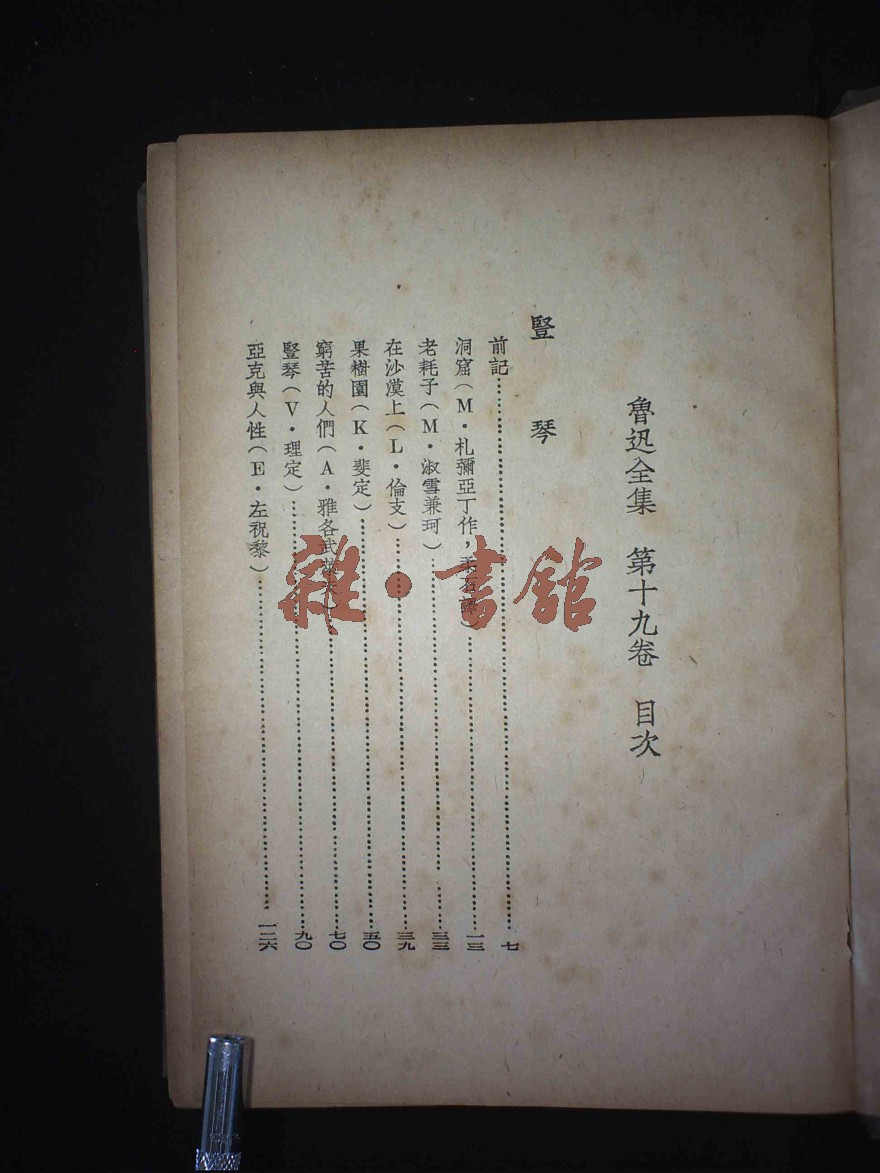 魯迅全集　第十九卷　目次
豎　琴
前記…………七
洞窟（M・札彌亞丁作，柔石譯）…………一三
老耗子（M・淑雪兼珂）…………三三
在沙漠上（L・倫支）…………三九
果樹園（K・斐定）…………五〇
窮苦的人們（A・雅各武萊夫）…………七〇
豎琴（V・理定）…………九〇
亞克與人性（E・左祝黎）…………一二六
雜・書館